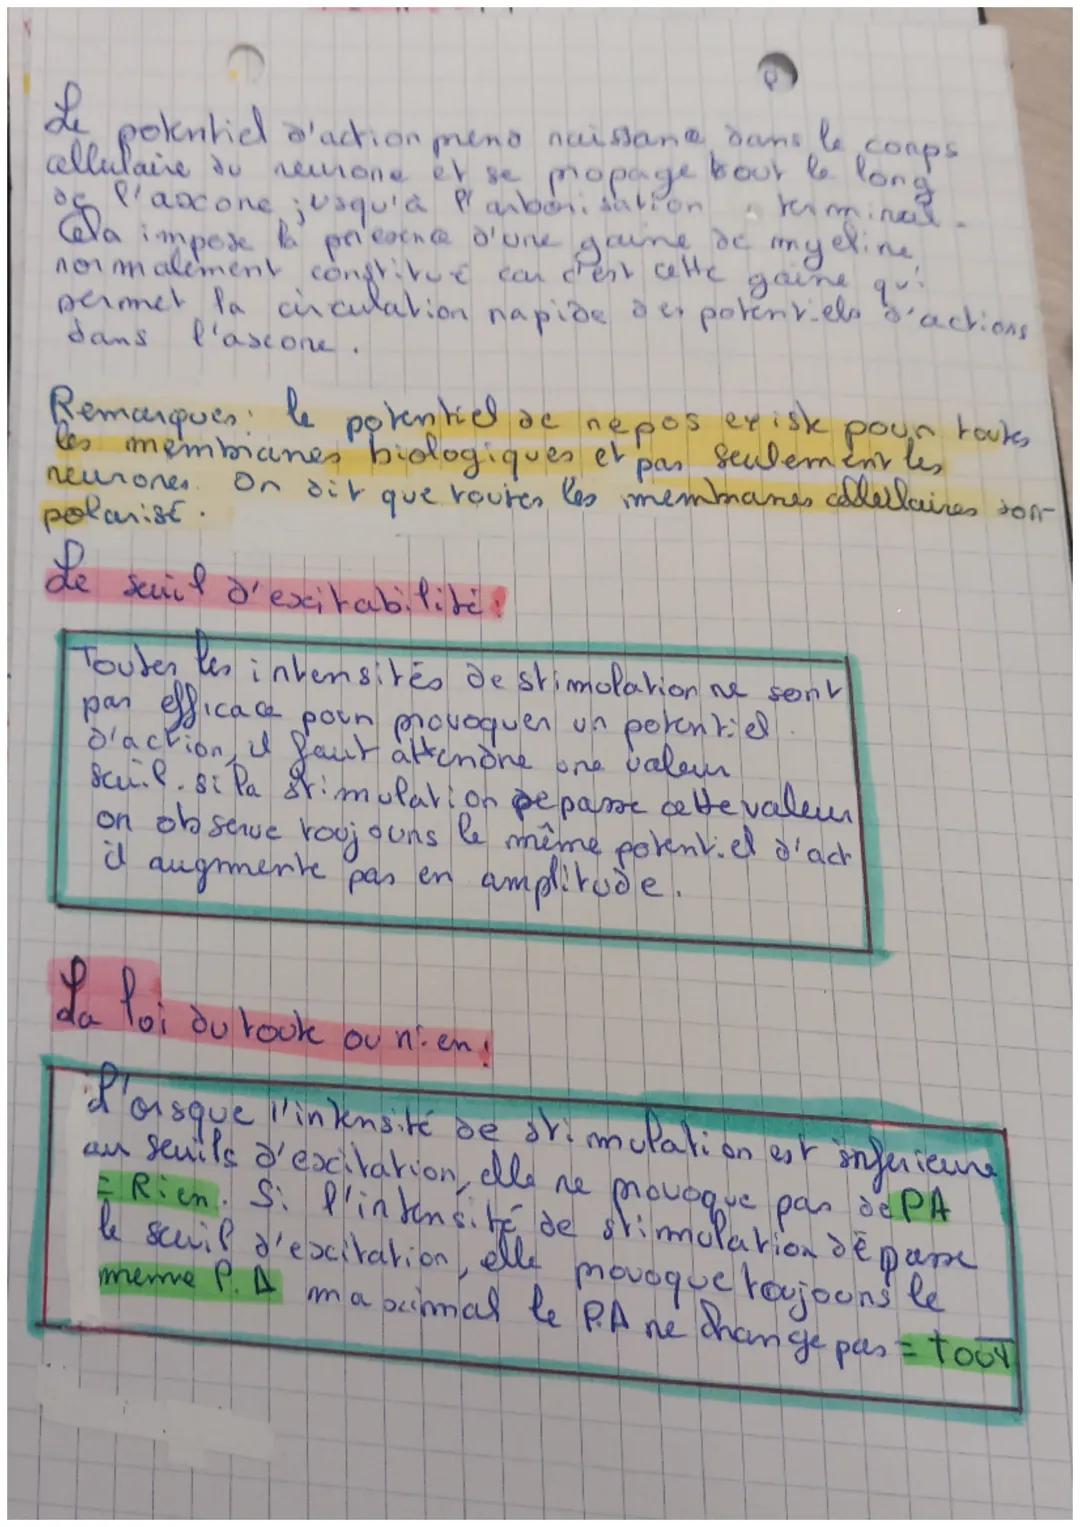 Le potentiel d'action prend naissane dans le corps
cellulaire du neurone et se propage tout le long
de l'axcone jusqu'à l'arborisation terminal.
Cela impose la présence d'une gaine de myeline
normalement constitué car c'est cette gaine qui
permet la circulation rapide des potentiels d'actions
dans l'axcone.
Remarques: le potentiel de repos existe pour toutes
les membranes biologiques et pas seulement les
neurones. On dit que toutes les membranes cellulaires sont
polarisé.
Le seuil d'excitabilité:
Toutes les intensités de stimolation ne sont
pas efficace pour provoquer un potentiel
d'action, il faut attendre une valeur
seuil. si la stimulation dépasse cette valeur
on observe toujours le même potentiel d'act
il augmente pas en amplitude.
La loi du toute ou rien:
L'orsque l'intensité de stimulation est inférieure
au seuils d'excitation, elle ne provoque pas de PA
= Rien. Si l'intensité de stimulation dépasse
le seuil d'excitation, elle provoque toujours le
meme P.A maximal le P.A ne change pas = tout